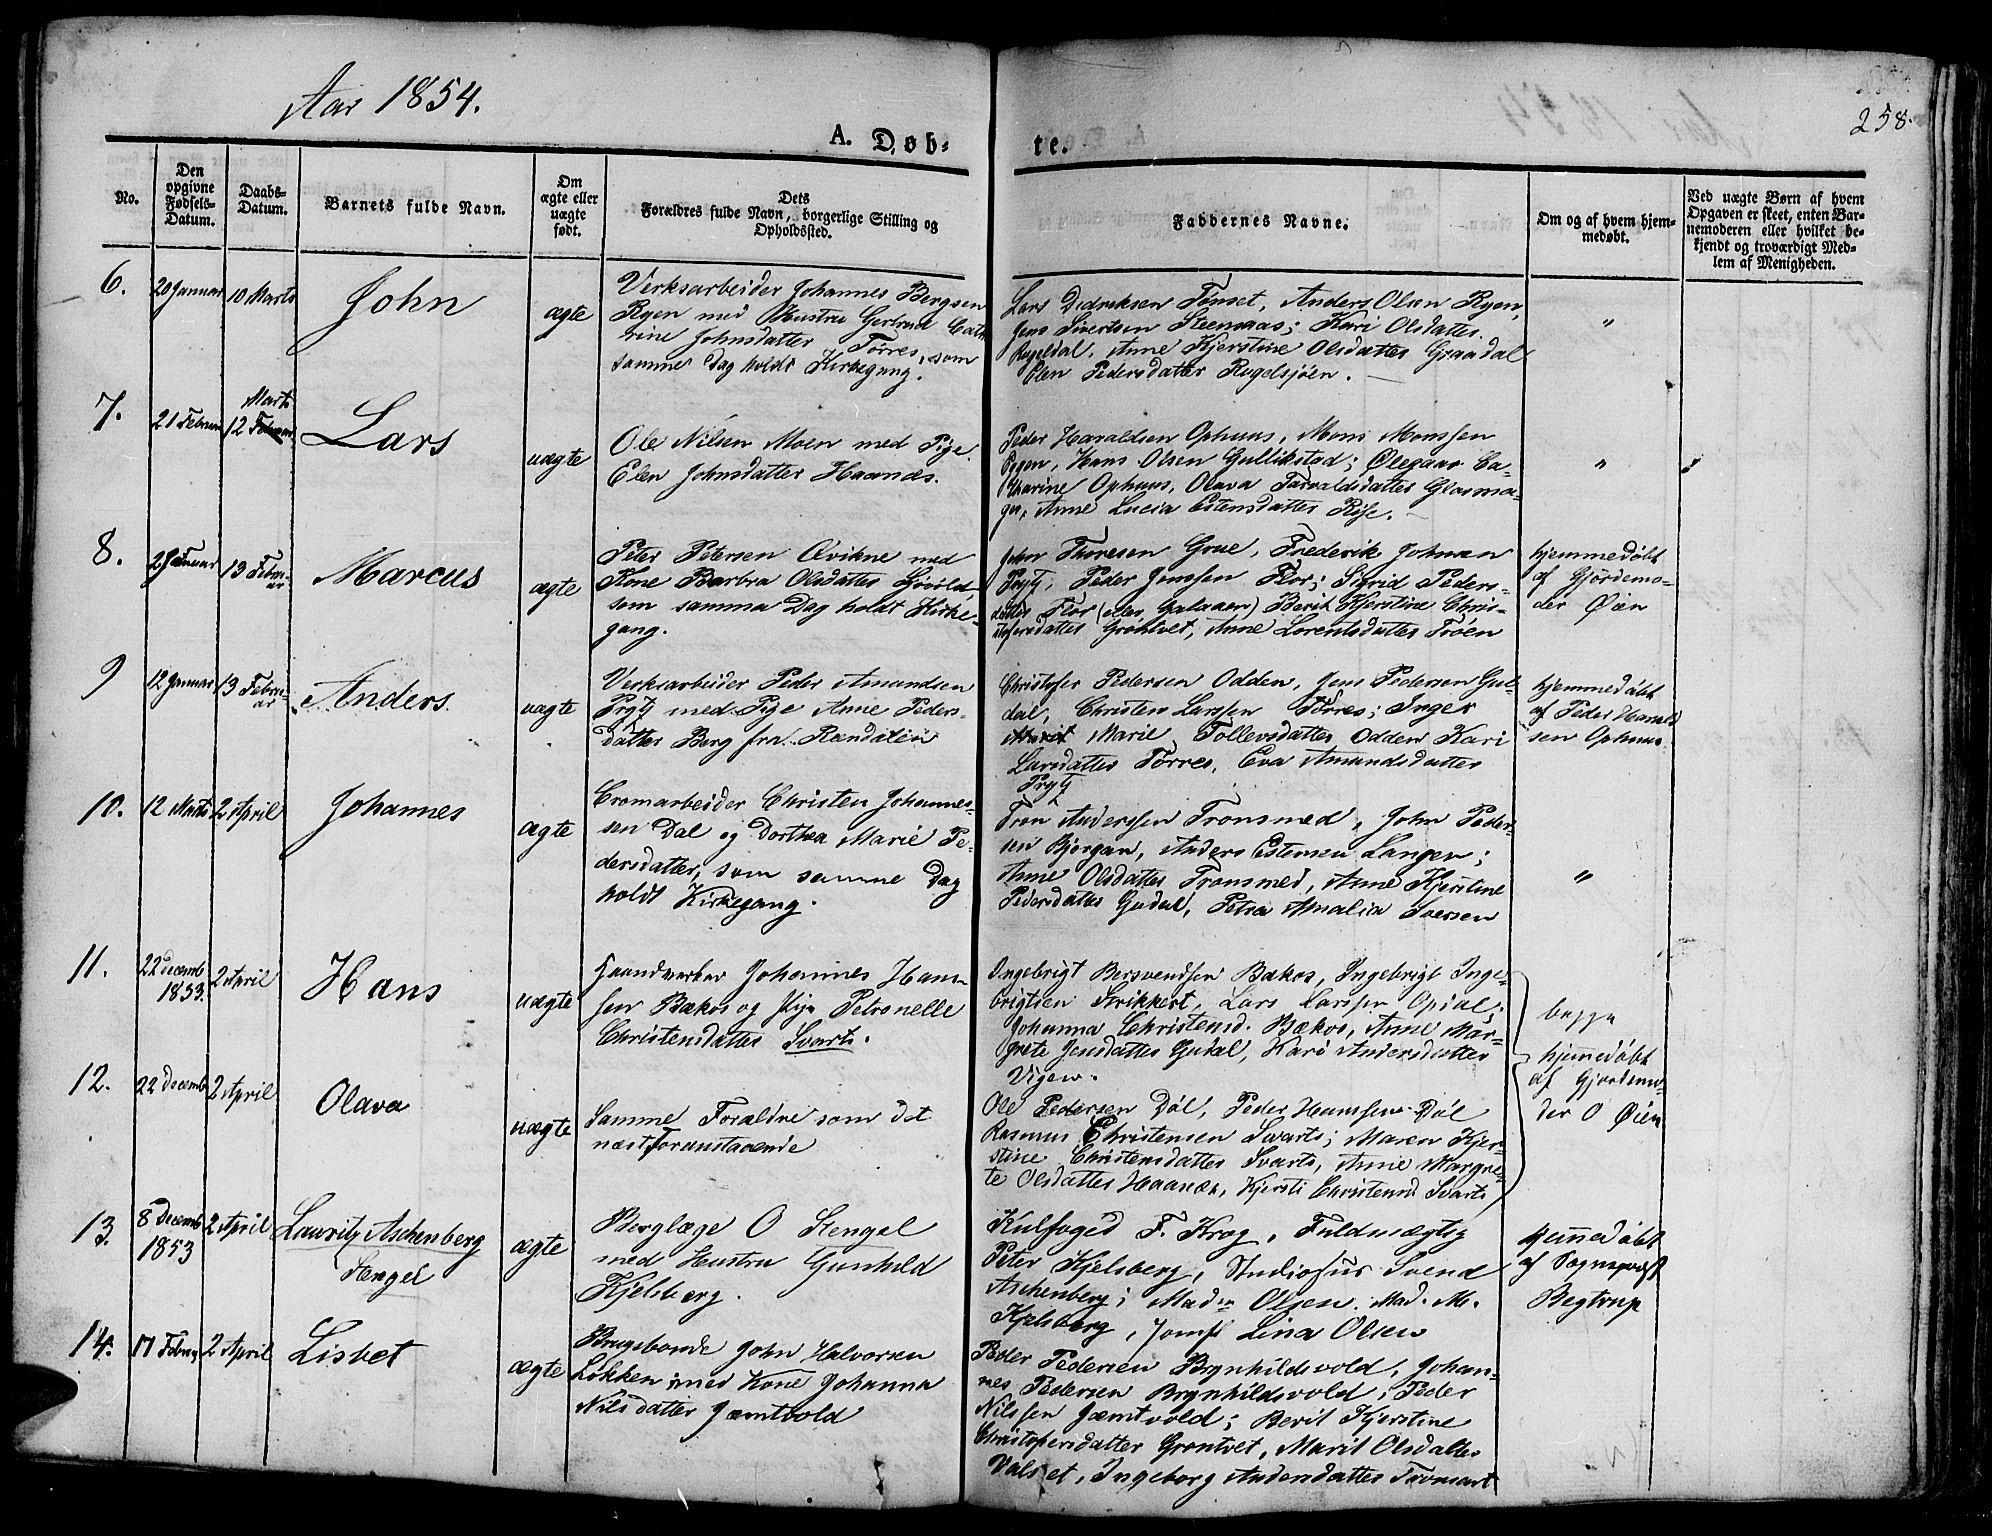 Aar 1854.
258.
A. Døb-
te.
No.
Den opgivne Fødsels-Datum.
Daabs-Datum.
Barnets fulde Navn.
Om ægte eller uægte født.
Dets Forældres fulde Navn, borgerlige Stilling og Opholdssted.
Faddernes Navne.
Om og af hvem hjemmedøbt.
Ved uægte Børn af hvem
Opgaven er skeet, enten Bar-
nemoderen eller hvilket be-
kjendt og troværdigt Med-
lem af Menigheden.
6.
20 Januar
10 Marts
John
ægte
Verksarbeider Johannes Bergsen
Ryen med Hustru Gertrud Cath
rine Johnsdatter Tørres, som
samme Dag holdt Kirkegang.
Lars Dedriksen Tønset, Anders Olsen Ryen,
Jens Sivertsen Steenaas; Kari Olsdatter
Rugeldal, Anne Kjerstine Olsdatter Graadal
Elen Pedersdatter Rugelsjöen.
"
7.
21 Februar
Marts
12 Februar
Lars
uægte
Ole Nilsen Moen med Pige
Elen Johnsdatter Haanæs.
Peder Haraldsen Ophuus, Mons Monssen
Hans Olsen Gullikstad; Olegaar Ca-
tharine Ophuus, Olava Tarvaldsdatter Glasma-
ger, Anne Lucia Estensdatter Rise.
"
8.
Januar
13 Febru-
ar
Marcus
ægte
Peter Petersen Qvikne med
Kone Barbra Olsdatter
som samma Dag holdt Kirke-
gang.
John Thoresen Grue, Frederik Johnsen
Prytz, Peder Jenssen Flor; Sigrid Peders-
datter Flor (eller Galaaen) Berit Kjerstine Chris-
tofersdatter Grøntvet, Anne Lorentsdatter Trøen
hjemmedöbt
af Gjördemo-
der Öien
9
12 Januar
13 Febru-
ar
Anders.
uægte
Verksarbeider Peder Amundsen
Prytz med Pige Anne Peders-
datter Berg fra Rendalen
Christofer Pedersen Odden, Jens Pedersen Gul-
dal, Christen Larssen Tørres; Inger
Marit Marie Tollevsdatter Odden Kari
Larsdatter Tørres, Eva Amundsdatter
Prytz
hjemmedöbt
af Peder Harald
sen Ophuus.
10.
12 Marts
2 April
Johannes
ægte
Cromarbeider Christen Johannes-
sen Dal og Dorthea Marie Pe-
dersdatter, som samme Dag
holdt Kirkegang.
Tron Anderssen Tronsmed, John Peder-
sen Bjorgan, Anders Estensen Langen;
Anne Olsdatter Tronsmed, Anne Kjerstine
Pedersdatter Gudal, Petra Amalia Iversen
"
11.
22 Decemb
1853.
2 April
Hans
uægte
Haandverker Johannes Han-
sen Bækos og Pige Petronelle
Christensdatter Svarts.
Ingebrigt Bersvendsen Bækos, Ingebrigt Inge-
brigtsen Strikkert, Lars Larssen Opdal;
Johanna Christensd. Bækos, Anne Mar-
grete Jensdatter Gudal, Kari Andersdatter
Vigen.
begge
hjemmedöbt
af Gjordemo-
der O Øien
12.
22 Decemb
2 April
Olava
uægte
Samme Forældre som det
næst foranstaaende
Ole Pedersen Döl, Peder Hanssen Döl
Rasmus Christensen Svarts; Maren Kjer-
stine Christensdatter Svarts, Anne Margre-
te Olsdatter Haanæs, Kjersti Christensd Svarts
13.
8 Decemb
1853
2 April
Lauritz Aschenberg
Stengel
ægte
Berglæge O Stengel
med Hustru Gunhild
Kjelsberg.
Kulfoged F. Krog, Fuldmægtig
Peter Kjelsberg, Studiosus Svend
Aschenberg; Madm Olsen. Mad. M.
Kjelsberg, Jomf Lina Olsen
hjemmedöbt
af Sognepræst
Begtrup
14.
17 Febru
2 April
Lisbet
ægte
Brugsbonde John Halvorsen
Løkken med Kone Johanna
Nilsdatter Jæmtvold
Peder Pedersen Brynhildsvold, Johan-
nes Pedersen Brynhildsvold; Peder
Nilssen Jæmtvold; Berit Kjerstine
Christofersdatter Grøntvet, Marit Olsdatter
Valset, Ingeborg Andersdatter Tronsart